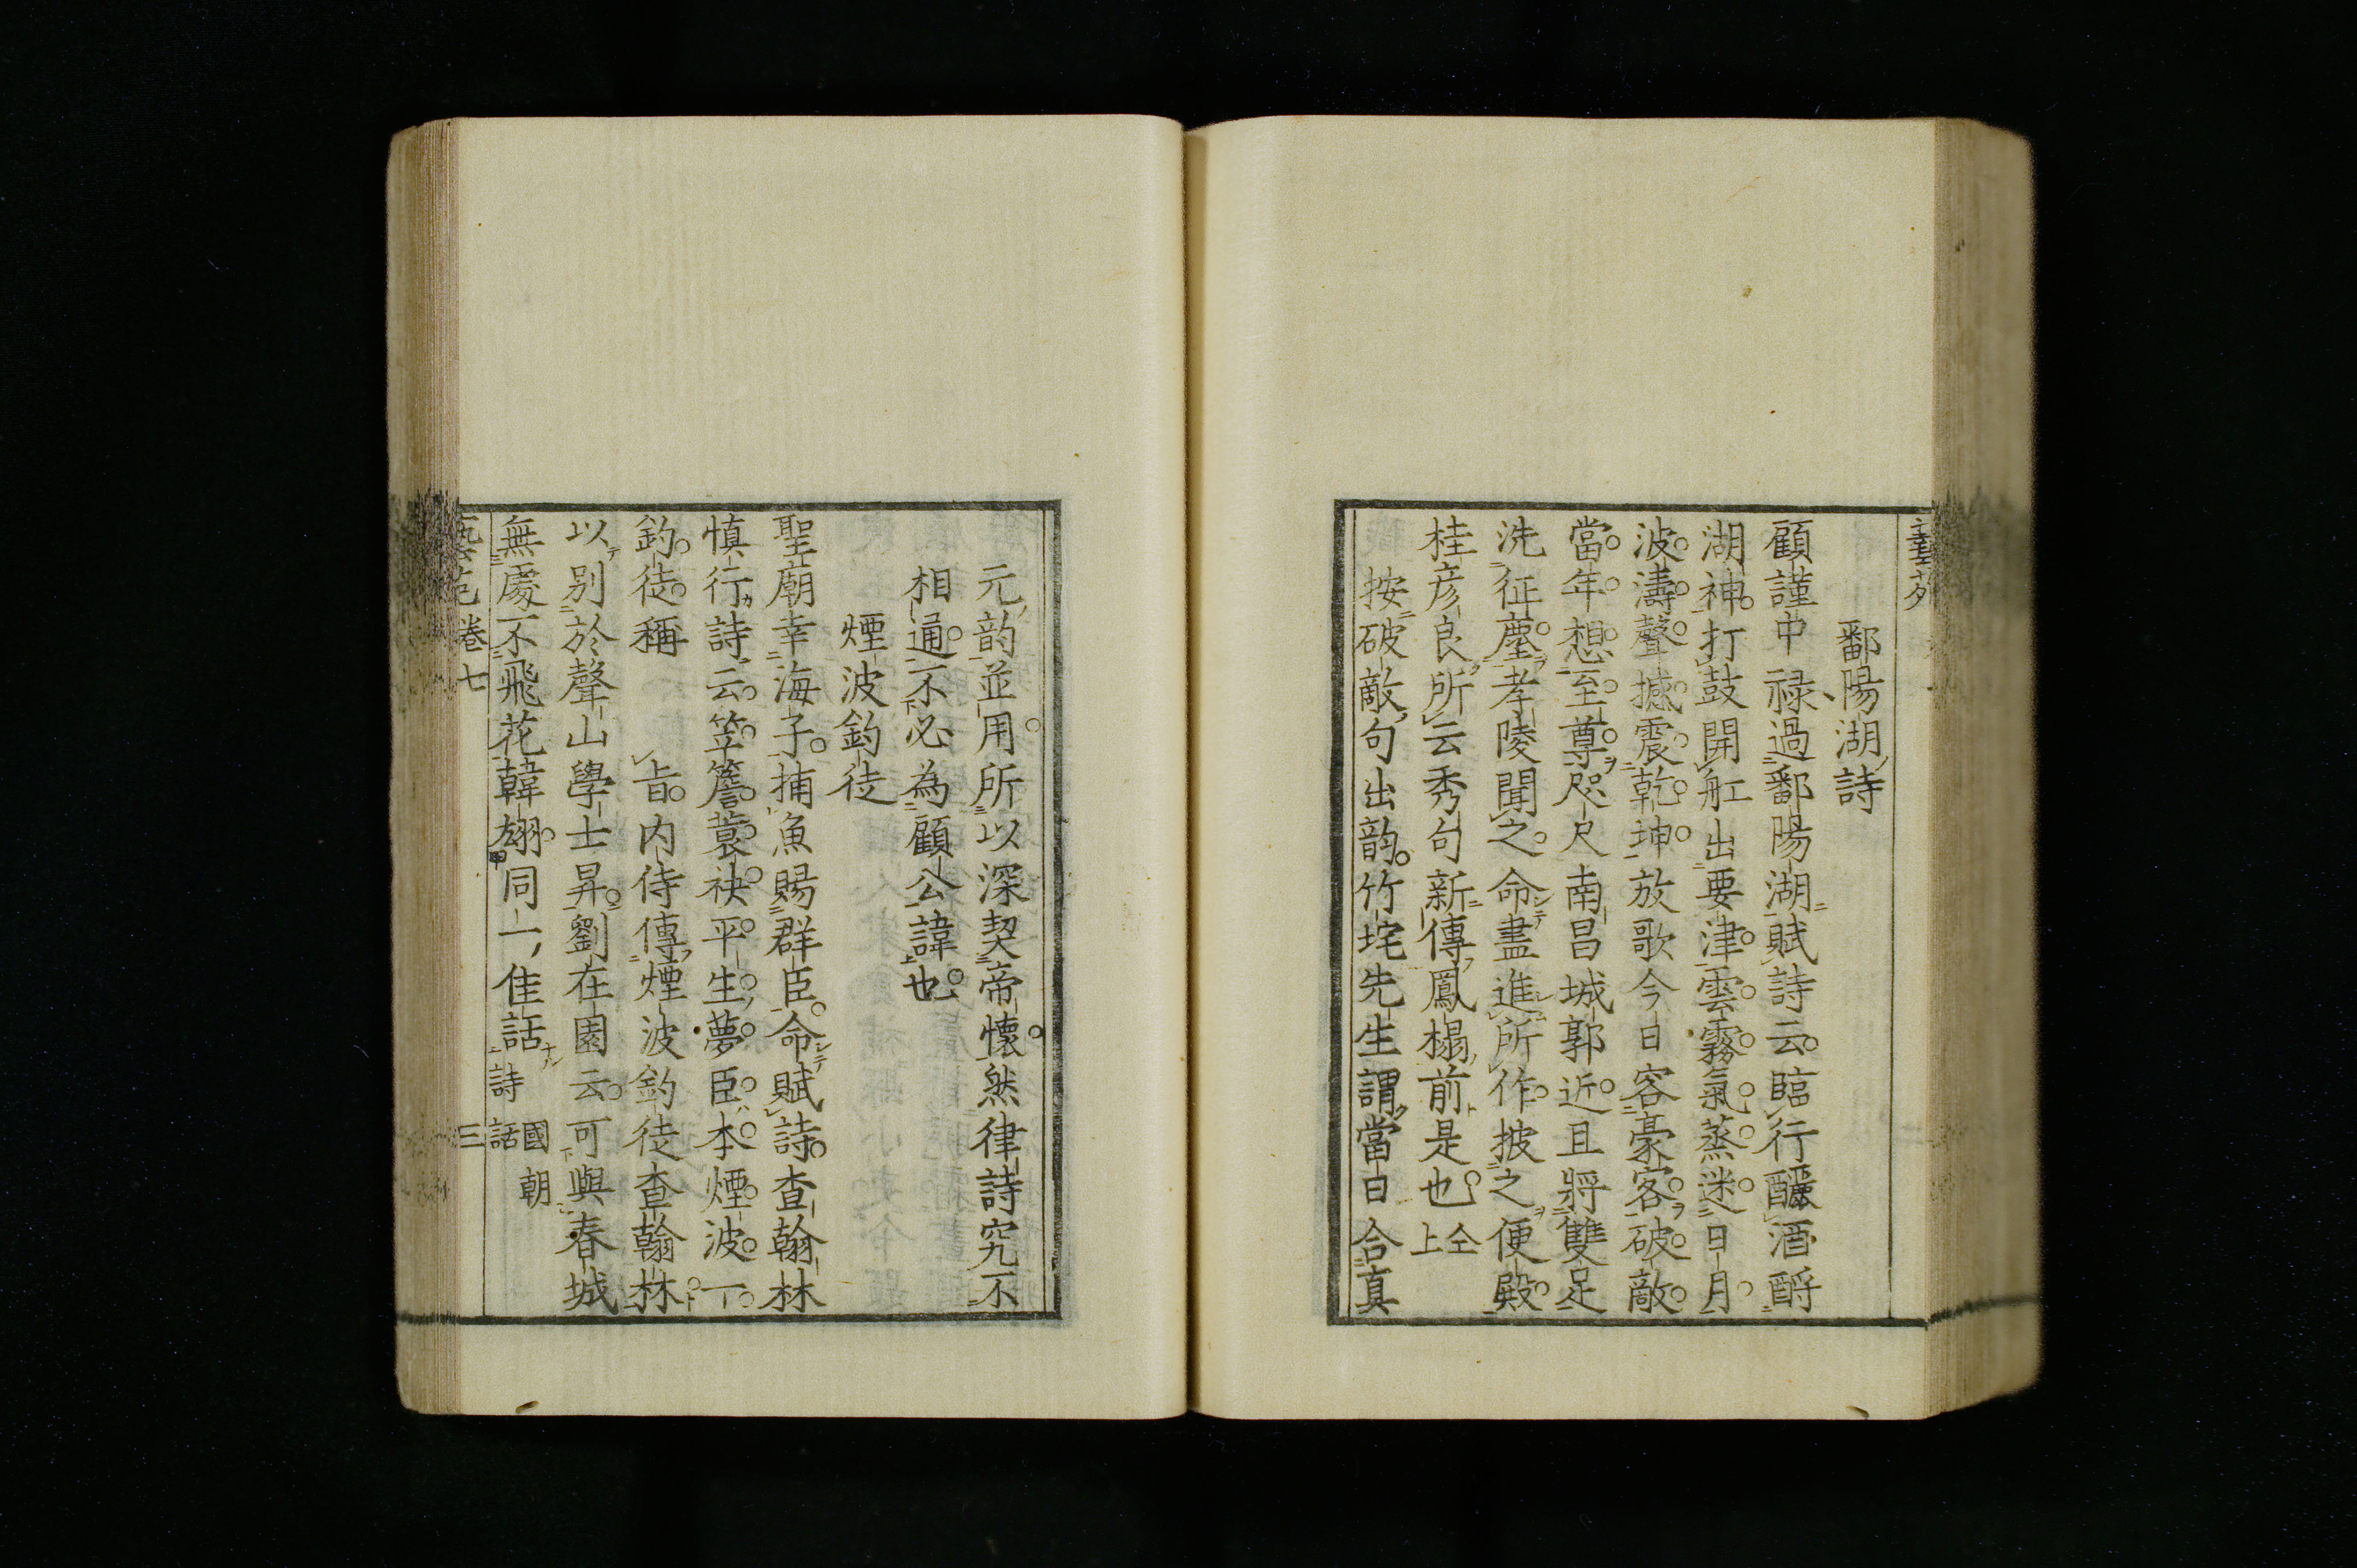 藝苑
鄱陽湖詩
顧謹中祿過鄱陽湖賦詩云臨行釃酒酹
湖神打鼓開舡出要津雲霧氣蒸迷日月
波濤聲撼震乾坤放歌今日容豪客破敵
當年想至尊咫尺南昌城郭近且將雙足
洗征塵孝陵聞之命盡進所作披之便殿
桂彥良所云秀句新傳鳳榻前是也仝上
按破敵句出韵竹垞先生謂當日合真
元韵並用所以深契帝懷然律詩究不
相通不必為顧公諱也
煙波釣徒
聖廟幸海子捕魚賜群臣命賦詩查翰林
慎行詩云笠簷蓑袂平生夢臣本煙波一
釣徒稱旨內侍傳煙波釣徒查翰林
以別於聲山學士昇劉在園云可與春城
無處不飛花韓翃同一佳話國朝詩話
藝苑 卷七 三